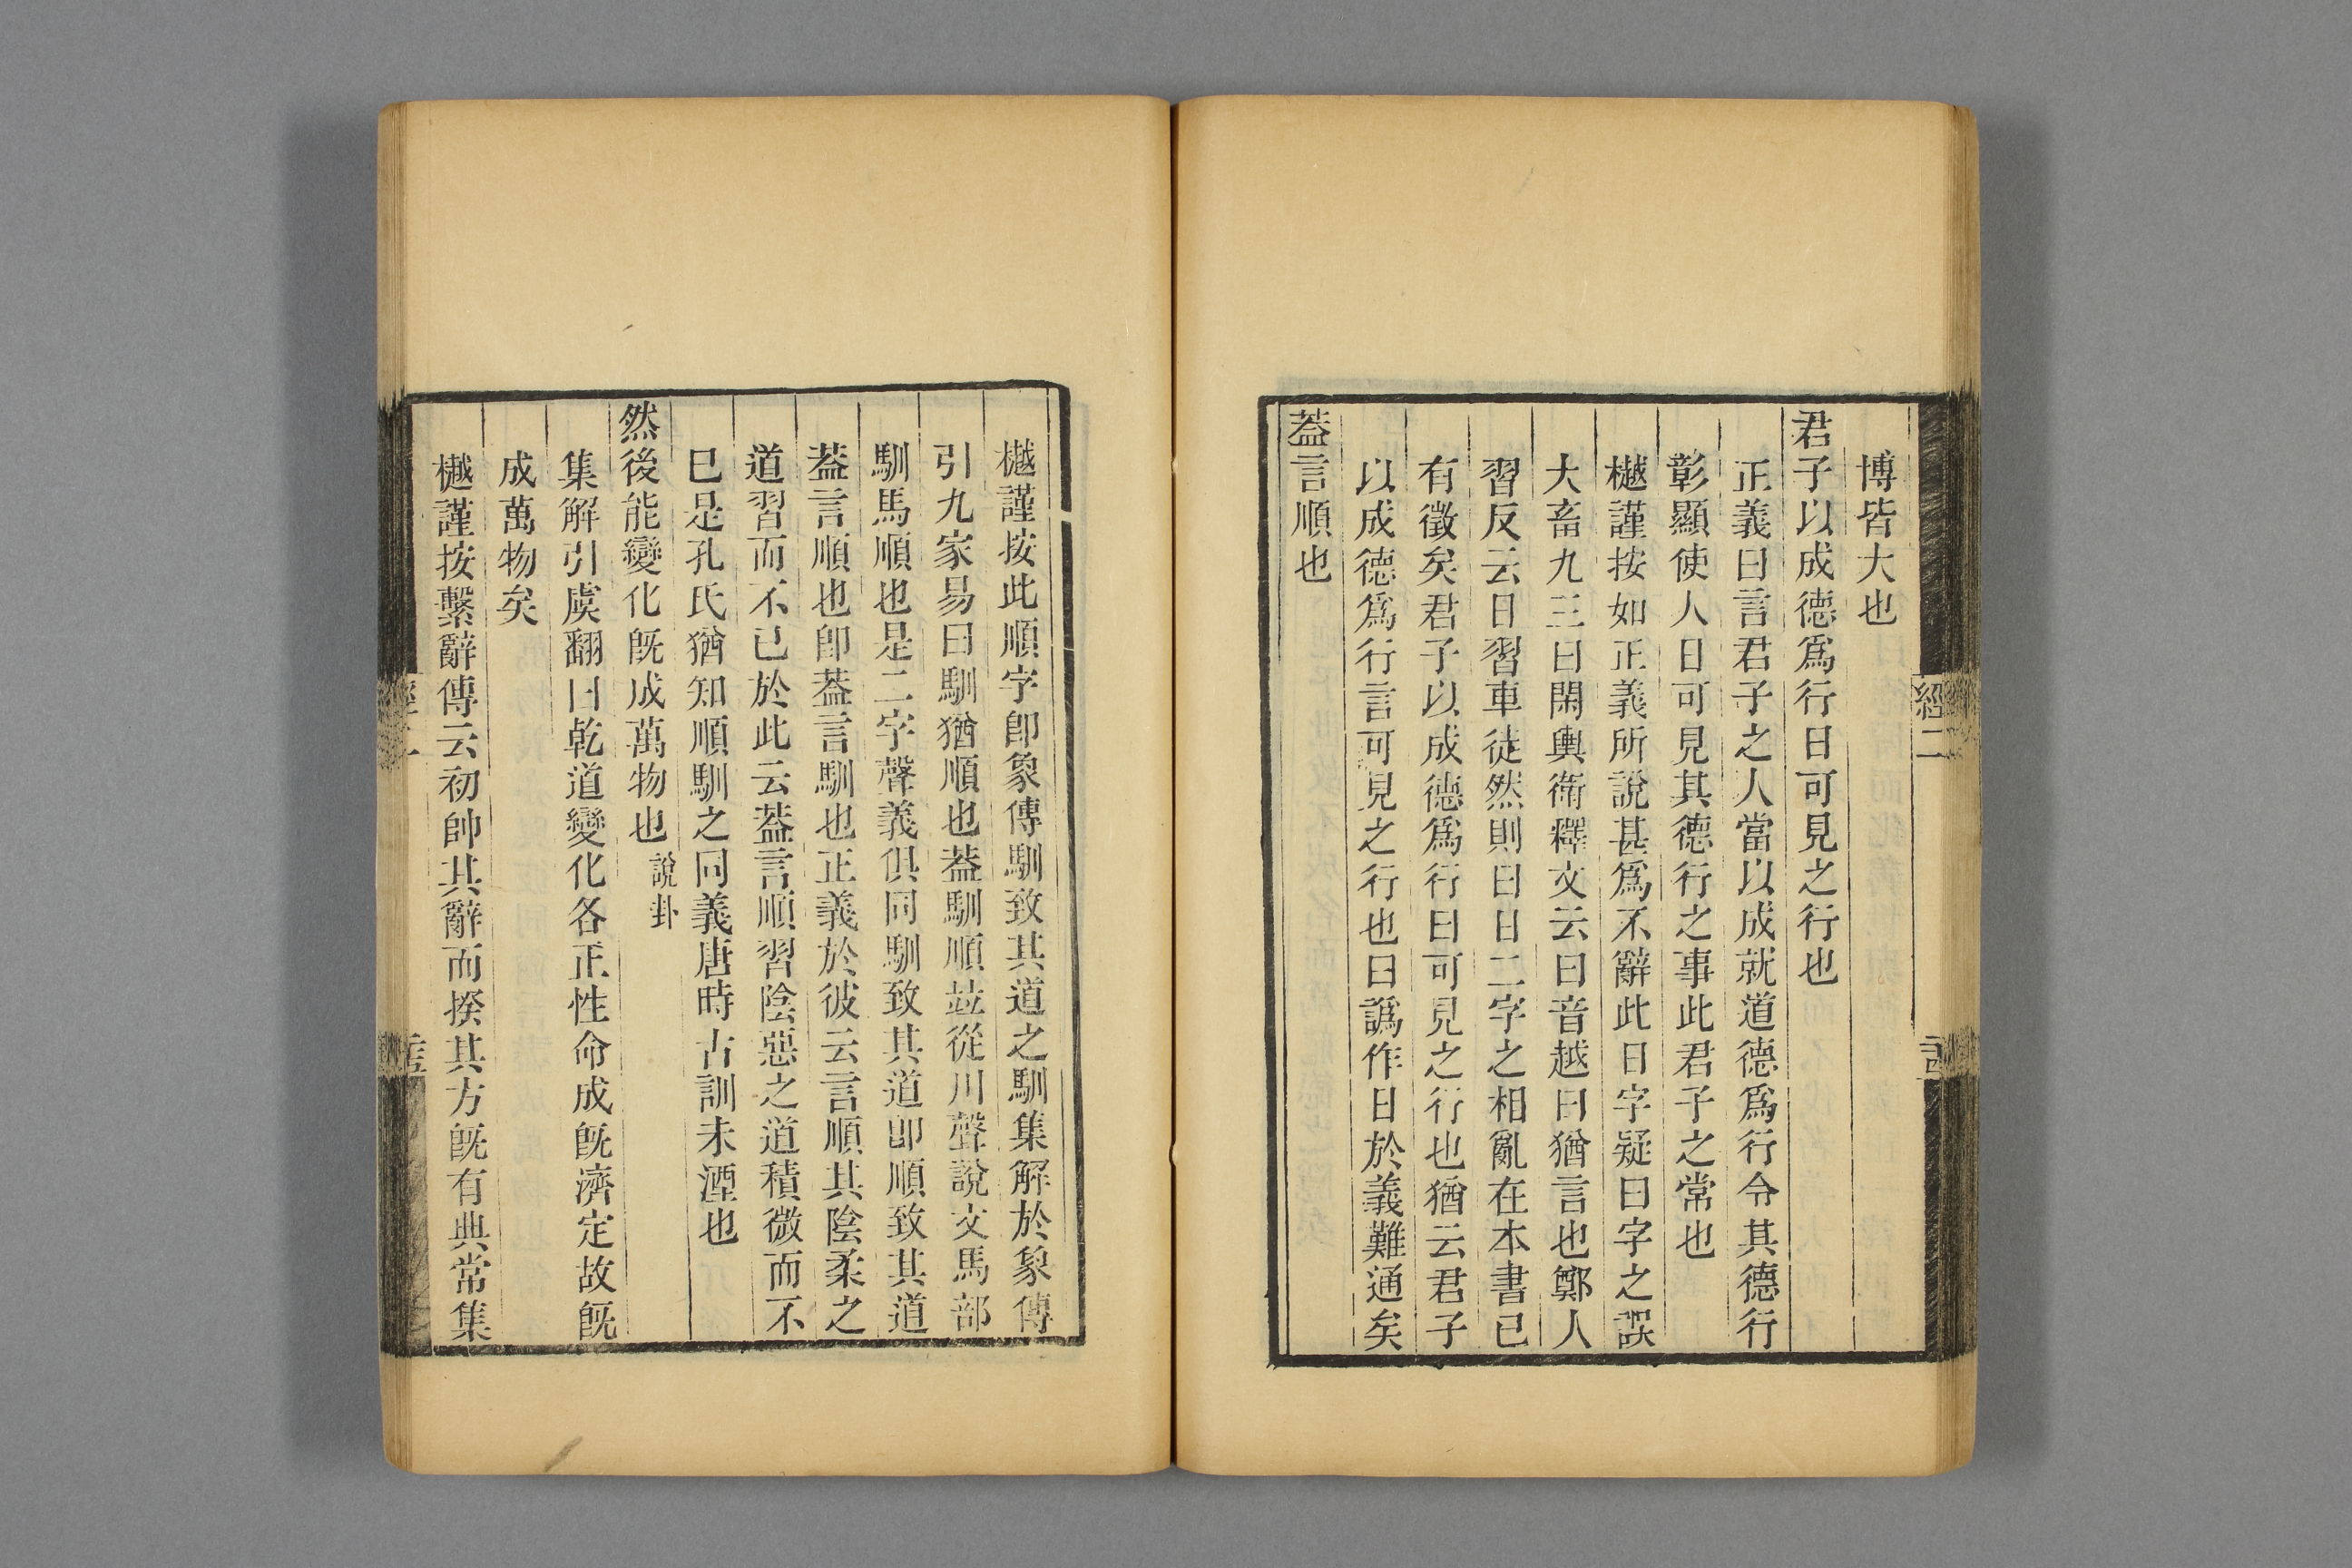 博皆大也
君子以成德爲行日可見之行也
正義曰言君子之人當以成就道德爲行令其德行
彰顯使人日可見其德行之事此君子之常也
樾謹按如正義所說甚爲不辭此日字疑曰字之誤
大畜九三曰閑輿衛釋文云曰音越曰猶言也鄭人
習反云日習車徒然則曰日二字之相亂在本書已
有徵矣君子以成德爲行曰可見之行也猶云君子
以成德爲行言可見之行也曰譌作日於義難通矣
葢言順也
經二
樾謹按此順字卽象傳馴致其道之馴集解於象傳
引九家易曰馴猶順也葢馴順竝從川聲說文馬部
馴馬順也是二字聲義俱同馴致其道卽順致其道
葢言順也卽葢言馴也正義於彼云言順其陰柔之
道習而不已於此云葢言順習陰惡之道積微而不
已是孔氏猶知順馴之同義唐時古訓未湮也
然後能變化旣成萬物也 說卦
集解引虞翻曰乾道變化各正性命成旣濟定故旣
成萬物矣
樾謹按繫辭傳云初帥其辭而揆其方旣有典常集